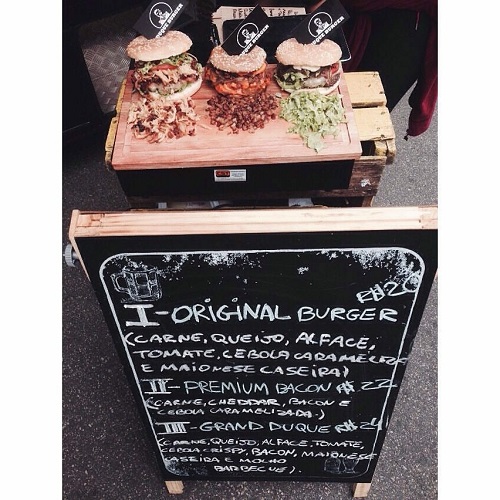 DUQUE BURGER
BURGER
DUQUE BURGER
I-ORIGINAL BURGER
(CARNE, QUEIJO, ALFACE,
TOMATE, CEBOLA
E MAIONESE CASEIRA)
II-PREMIUM BACON R$ 22
(CARNE, CHEDDAR, BACON E
CEBOLA CARAMELIZADA.)
III-GRAND DUQUE R$
(CARNE, QUEIJO, ALFACE, TOMATE,
CEBOLA CRISPY, BACON, MAIONESE
CASEIRA E MOLHO
BARBECUE).